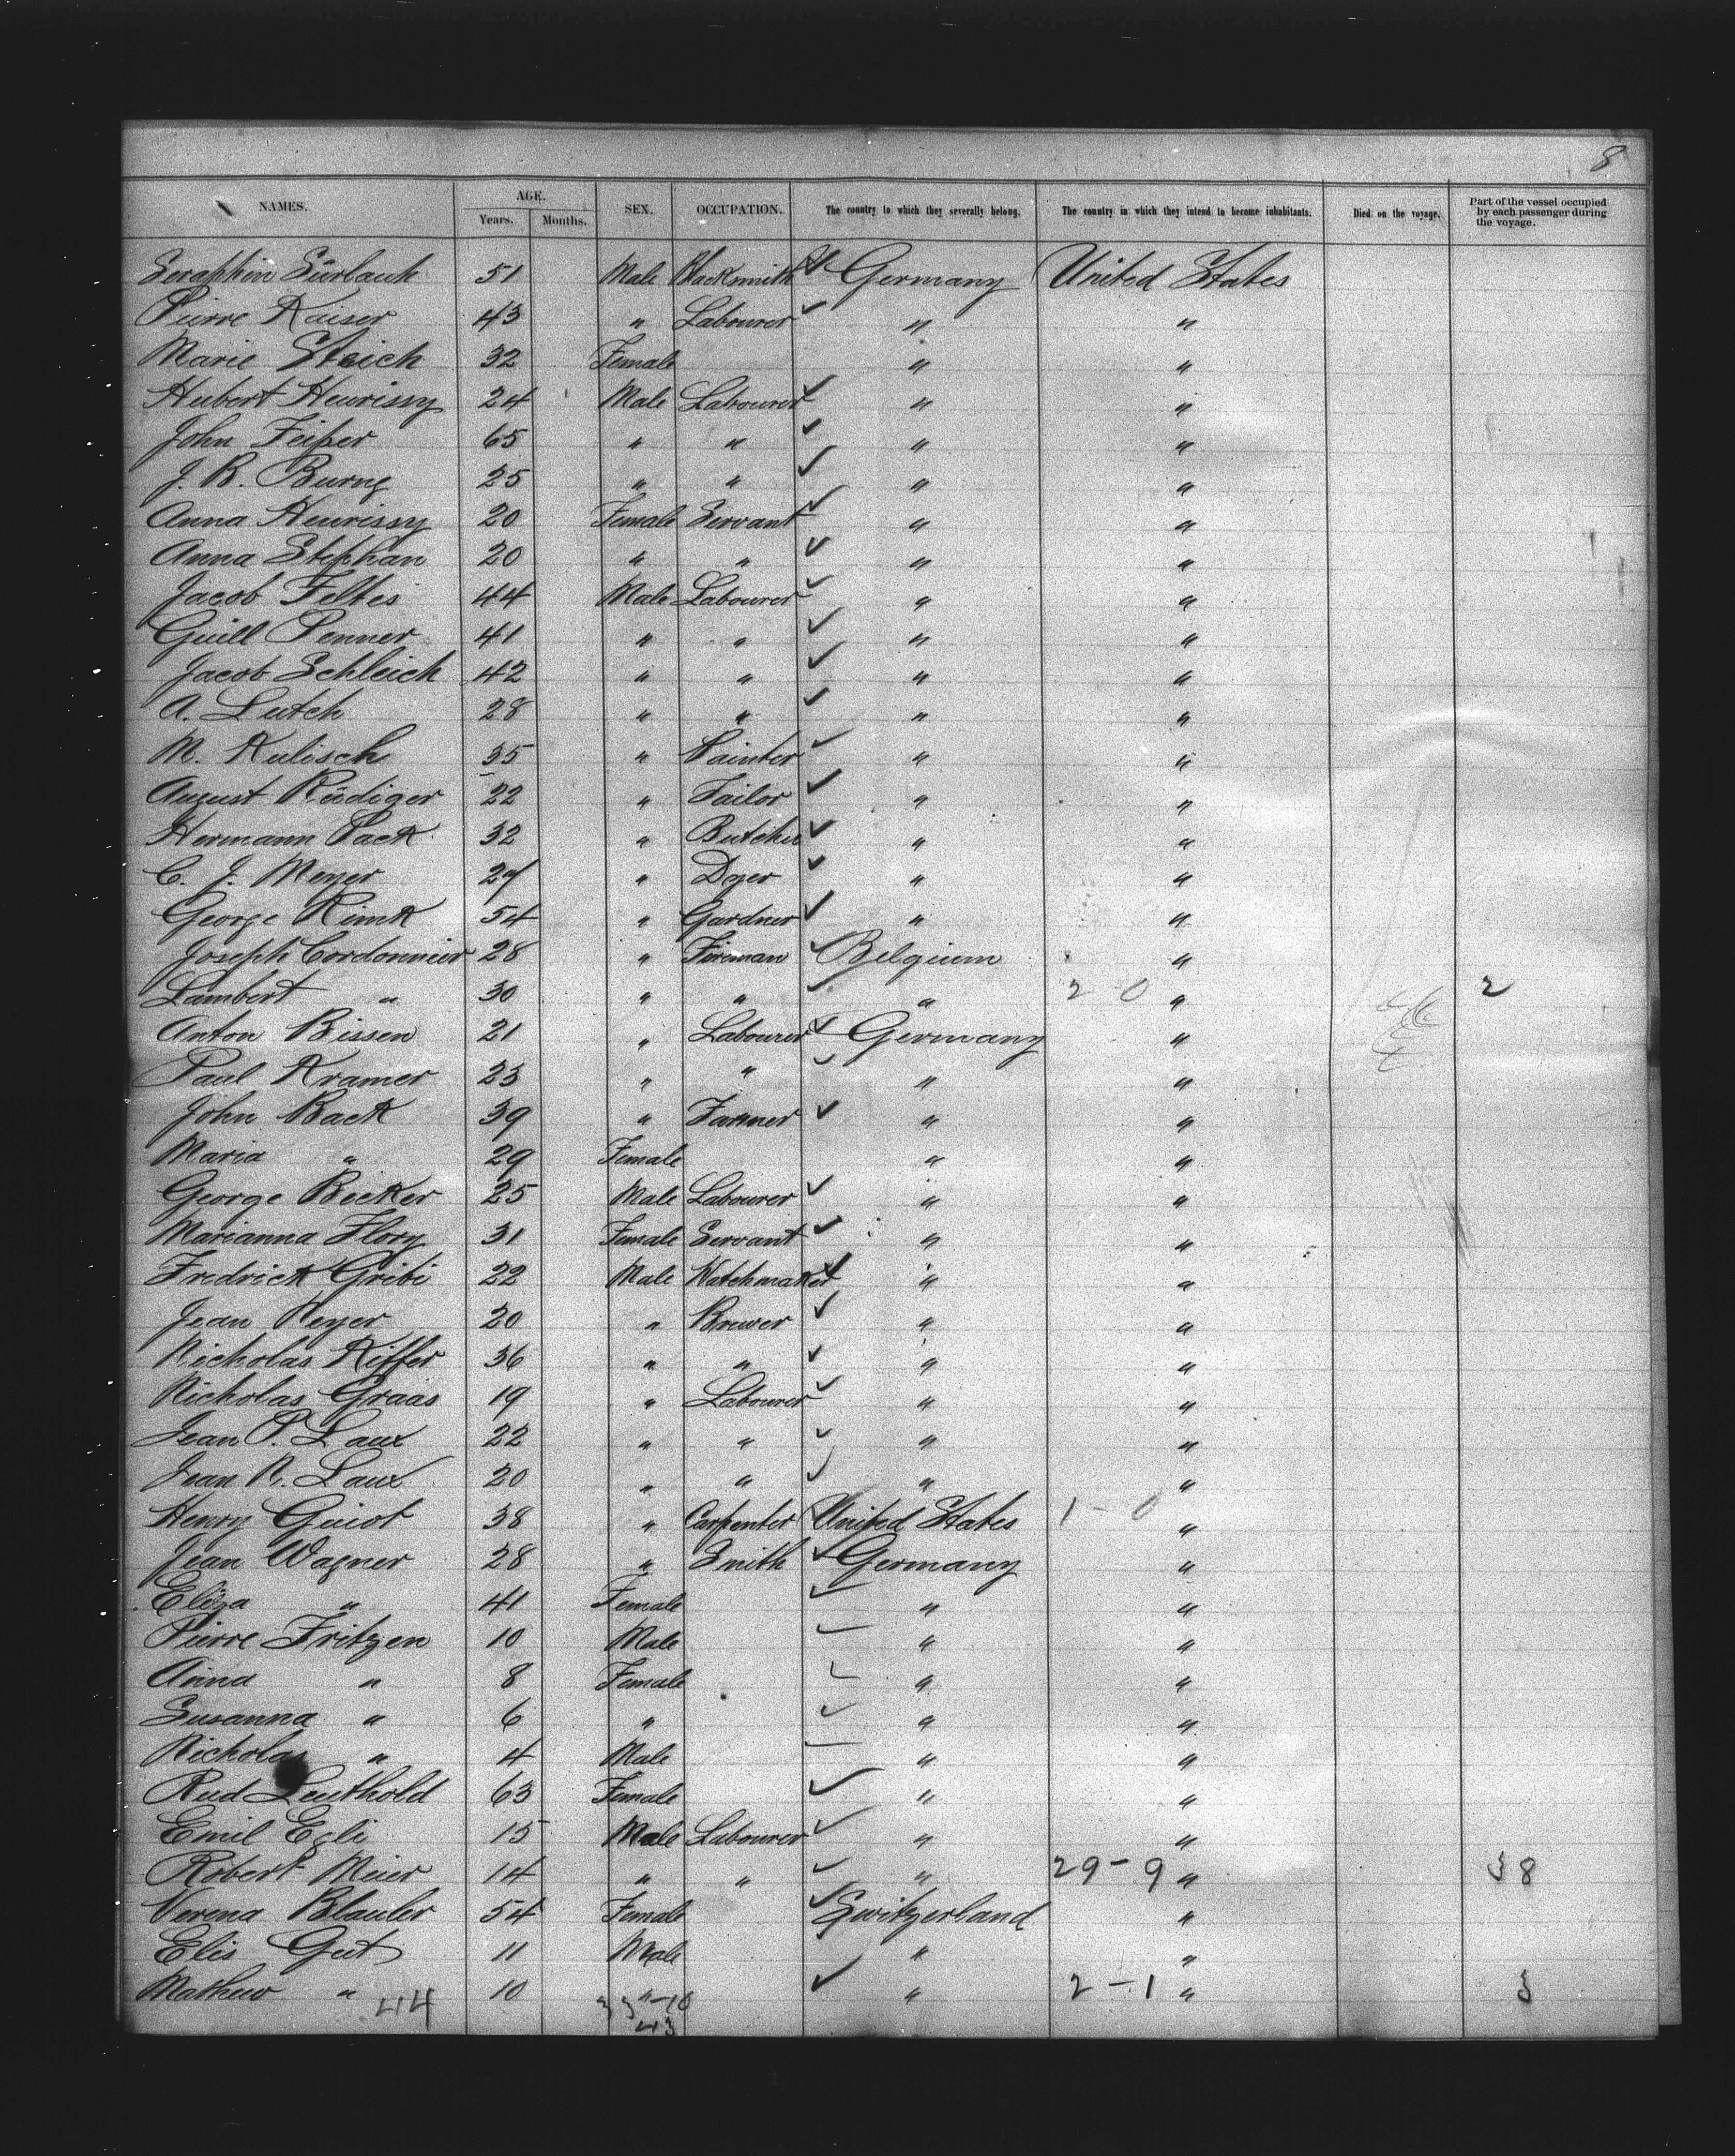 8
NAMES. AGE. Years. Months. SEX. OCCUPATION. The country to which they severally belong. The country in which they intend to become inhabitants. Died on the voyage. Part of the vessel occupied by each passenger during the voyage.
Seraphin Sürlauk 51 Male Blacksmith Germany United States
Pierre Kaiser 43 " Labourer " "
Marie Steich 32 Female " "
Hubert Heurissy 24 Male Labourer " "
John Feiper 65 " " " "
J. B. Burng 25 " " " "
Anna Heurissy 20 Female Servant " "
Anna Stephan 20 " " " "
Jacob Feltes 44 Male Labourer " "
Guill Penner 41 " " " "
Jacob Schleich 42 " " " "
A. Lutch 28 " " " "
M. Kulisch 35 " Painter " "
August Rüdiger 22 " Tailor " "
Hermann Pack 32 " Butcher " "
C. J. Meyer 27 " Dyer " "
George Rimk 54 " Gardner " "
Joseph Cordonnier 28 " Fireman Belgium "
Lambert " 30 " " " 2 0 " 2
Anton Bissen 21 " Labourer Germany "
Paul Kramer 23 " " " "
John Back 39 " Farmer " "
Maria " 29 Female " "
George Becker 25 Male Labourer " "
Marianna Flory 31 Female Servant " "
Fredrick Gribi 22 Male Watchmaker " "
Jean Heyer 20 " Brewer " "
Nicholas Kiffer 36 " " " "
Nicholas Graas 19 " Labourer " "
Jean P. Laux 22 " " " "
Jean N. Laux 20 " " " "
Henry Guiot 38 " Carpenter United States 1 - 0 "
Jean Wagner 28 " Smith Germany "
Eliza " 41 Female " "
Pierre Fritzen 10 Male " "
Anna " 8 Female " "
Susanna " 6 " " "
Nicholas " 4 Male " "
Rud Leuthold 63 Female " "
Emil Egli 15 Male Labourer " "
Robert Meier 14 " " " 29 - 9 " 38
Verena Blauler 54 Female Switzerland "
Elis Gut 11 Male " "
Mathew " 10 " " 2 - 1 " 3
44 33-10
43